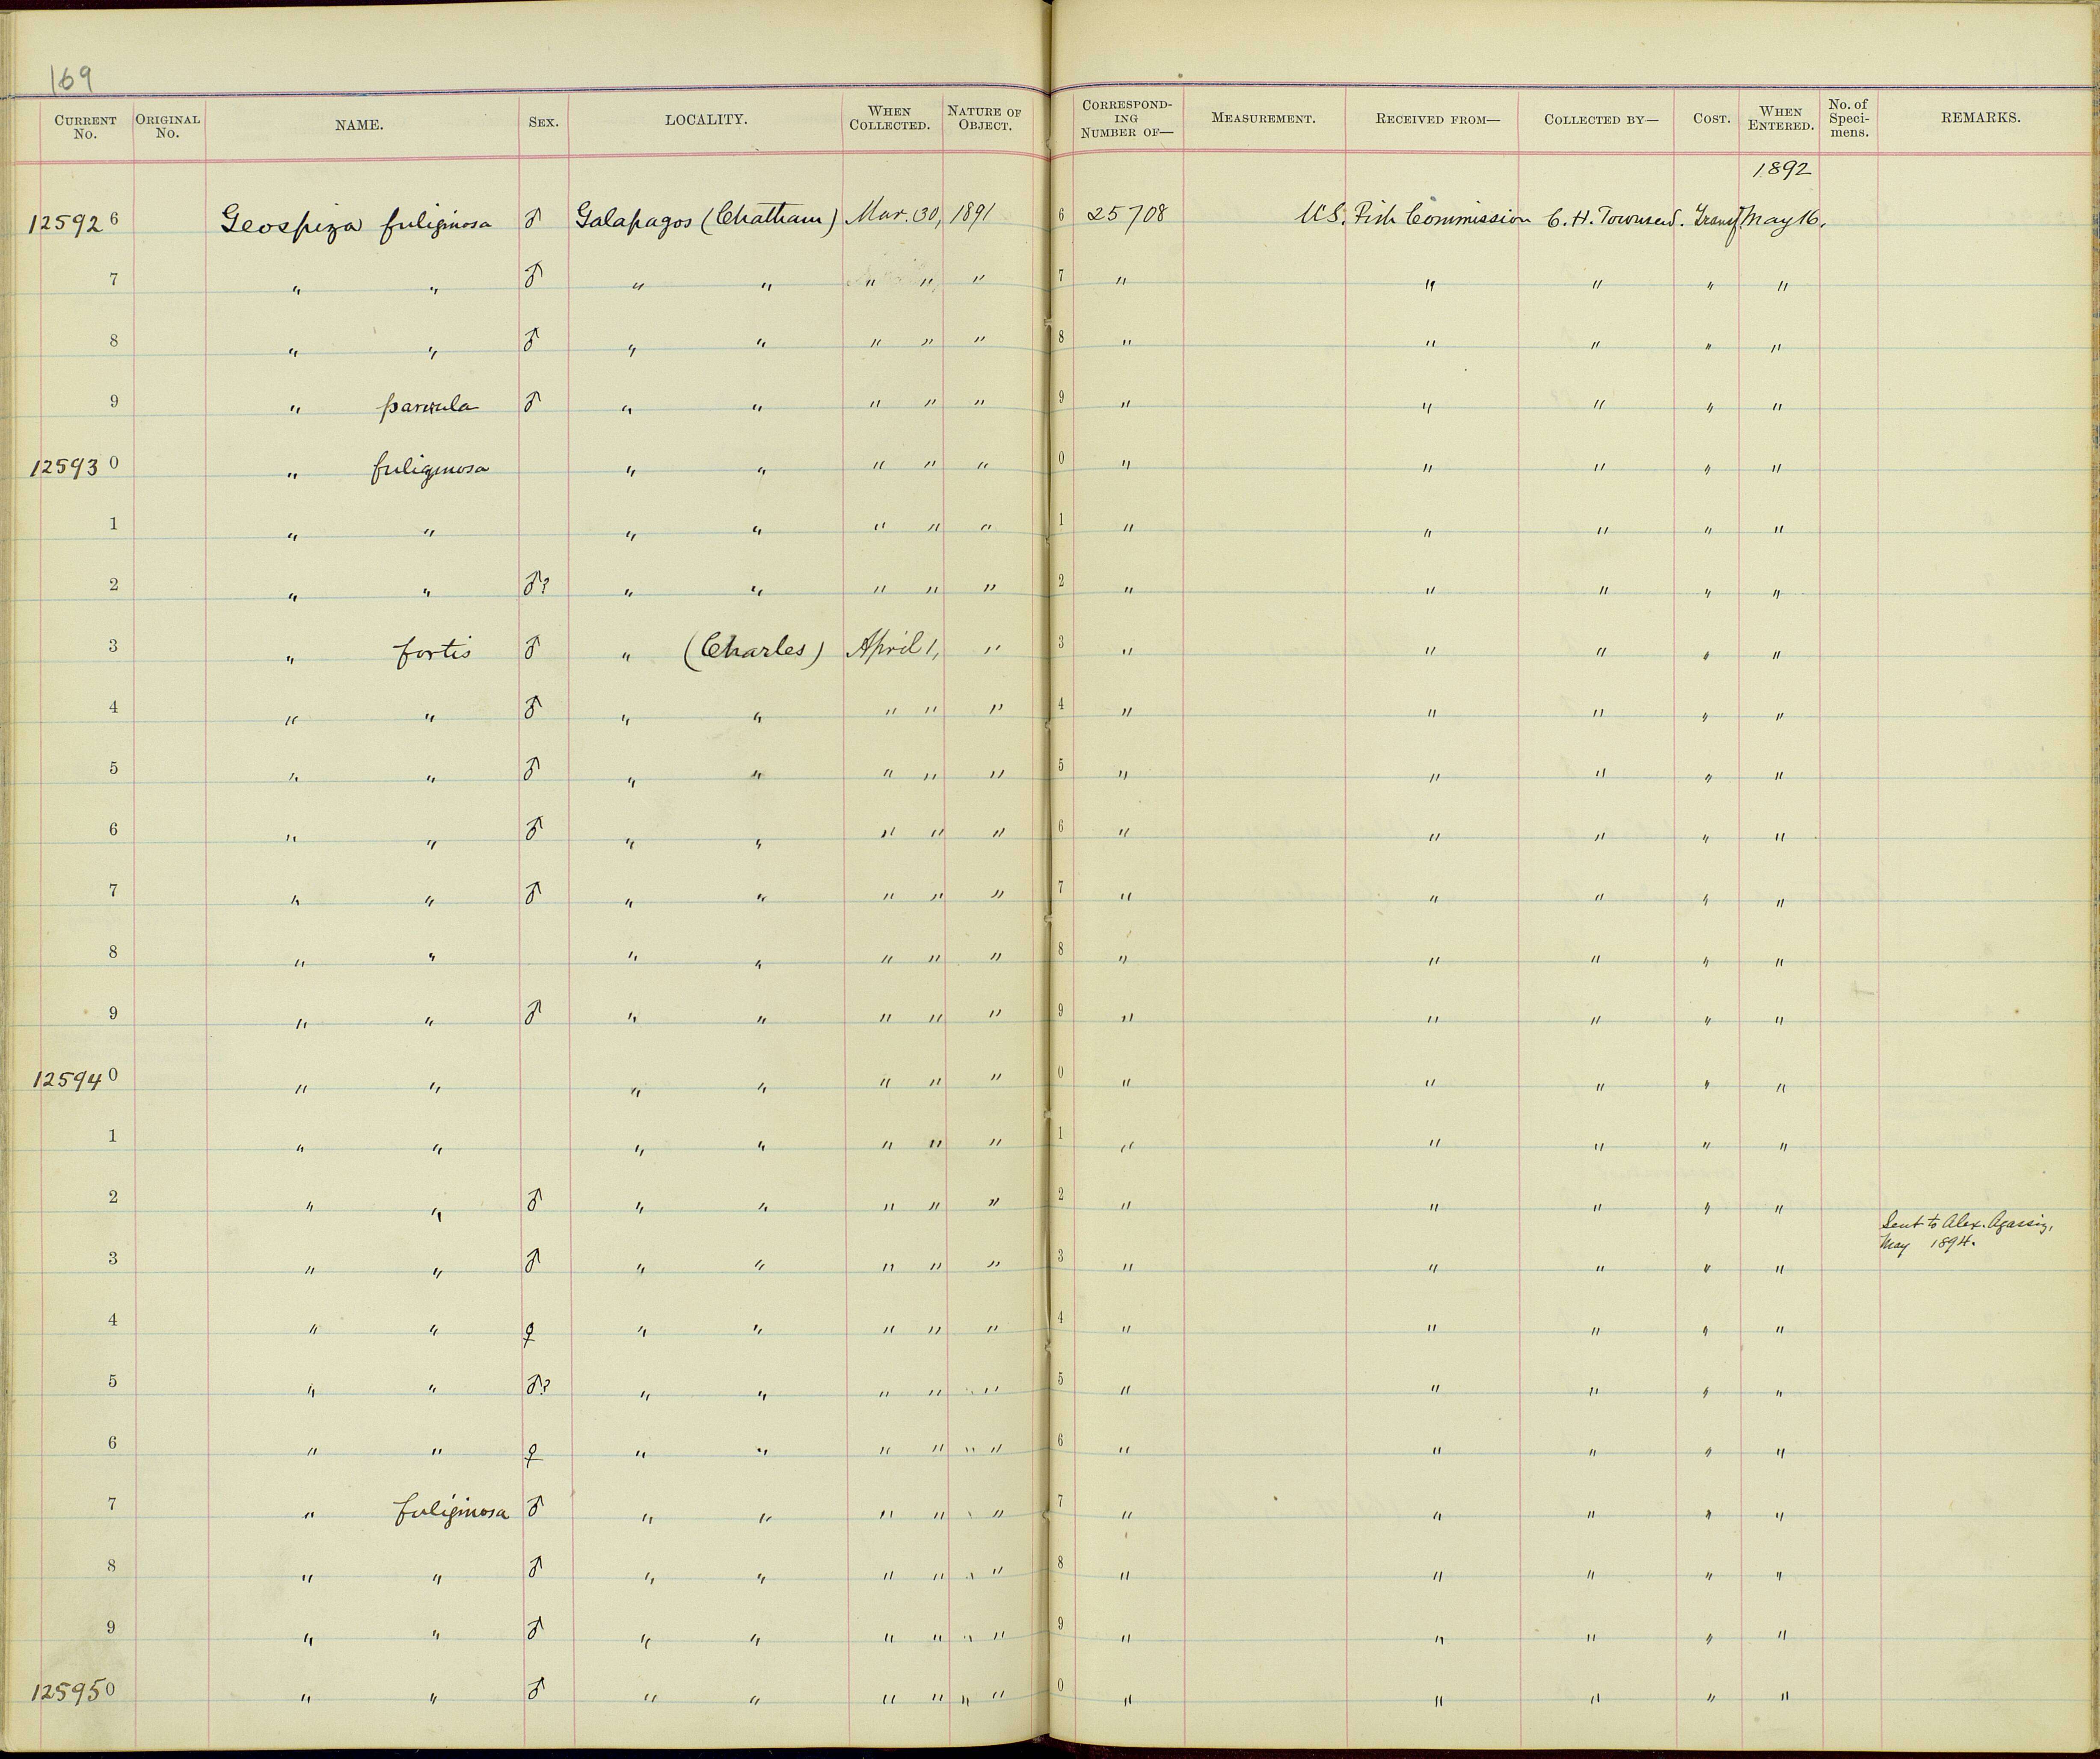 169
CURRENT No. ORIGINAL No. NAME. SEX. LOCALITY. WHEN COLLECTED. NATURE OF OBJECT. CORRESPOND-ING NUMBER OF— MEASUREMENT. RECEIVED FROM— COLLECTED BY— COST. WHEN ENTERED. No. of Speci-mens. REMARKS.
1892
125926 Geospiza fuliginosa ♂ Galapagos (Chatham) Mar. 30, 1891 6 25708 U.S. Fish Commission C. H. Townsend. Transf. May 16.
7 " " ♂ " " " " " 7 " " " " "
8 " " ♂ " " " " " 8 " " " " "
9 " parvula ♂ " " " " " 9 " " " " "
125930 " fuliginosa " " " " " 0 " " " " "
1 " " " " " " " 1 " " " " "
2 " " ♂? " " " " " 2 " " " " "
3 " fortis ♂ " (Charles) April 1, " 3 " " " " "
4 " " ♂ " " " " " 4 " " " " "
5 " " ♂ " " " " " 5 " " " " "
6 " " ♂ " " " " " 6 " " " " "
7 " " ♂ " " " " " 7 " " " " "
8 " " " " " " " 8 " " " " "
9 " " ♂ " " " " " 9 " " " " "
125940 " " " " " " " 0 " " " " "
1 " " " " " " " 1 " " " " "
2 " " ♂ " " " " " 2 " " " " "
3 " " ♂ " " " " " 3 " " " " " Sent to Alex. Agassiz,
May 1894.
4 " " ♀ " " " " " 4 " " " " "
5 " " ♂? " " " " " 5 " " " " "
6 " " ♀ " " " " " " 6 " " " " "
7 " fuliginosa ♂ " " " " " 7 " " " " "
8 " " ♂ " " " " " " 8 " " " " "
9 " " ♂ " " " " " " 9 " " " " "
125950 " " ♂ " " " " " " 0 " " " " "